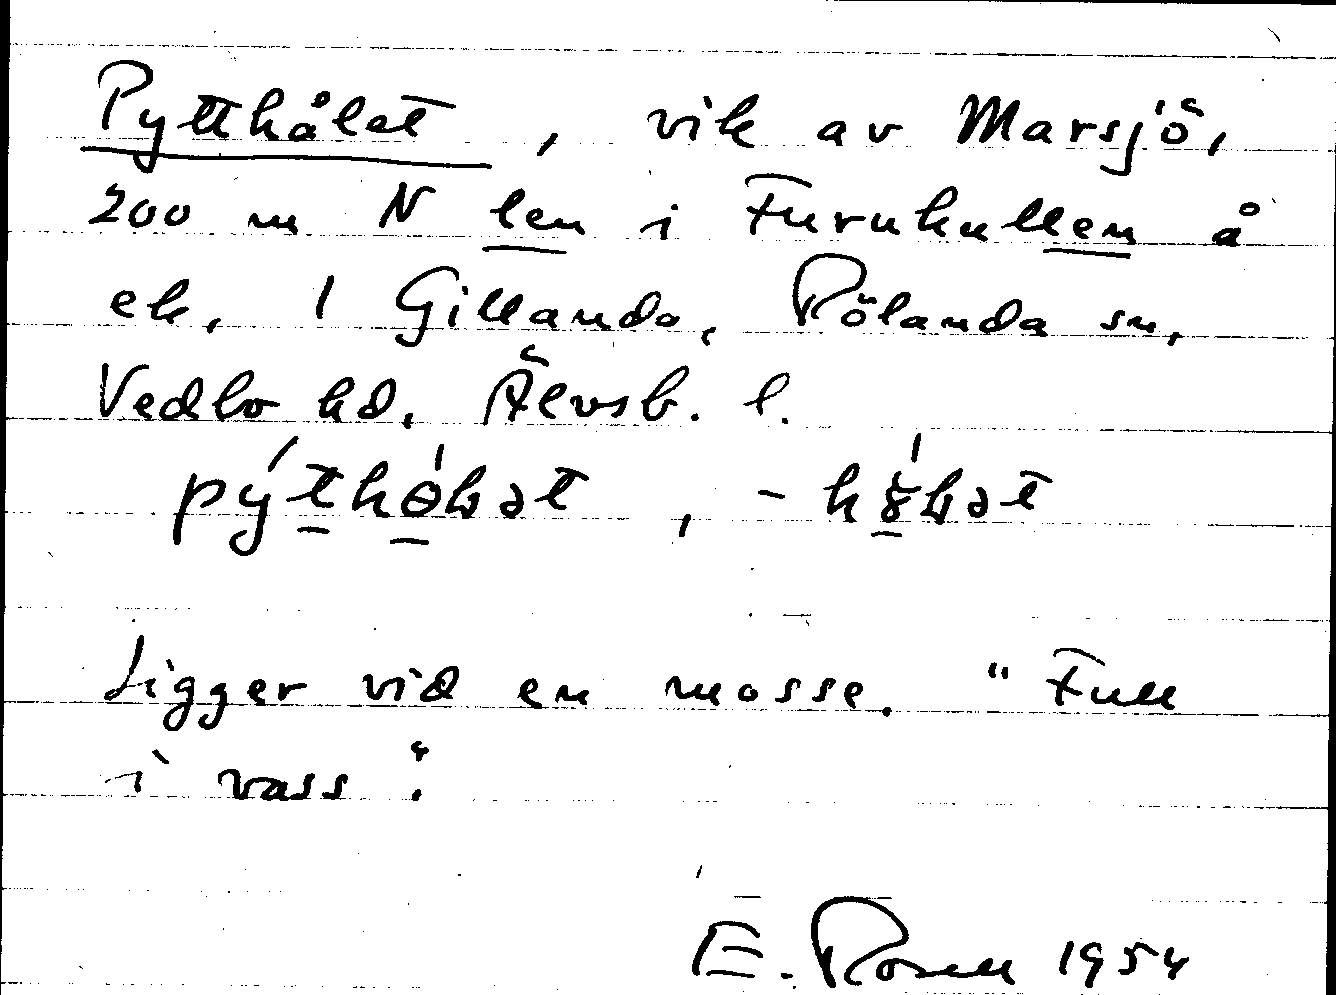 Pytthålet, vik av Marsjö,
200 m N len i Furukullen å
ek. 1 Gillanda, Rölanda sn,
Vedbo hd, Älvsb. l.
Ligger vid en mosse. "Full
i vass".
E. Rosell 1954